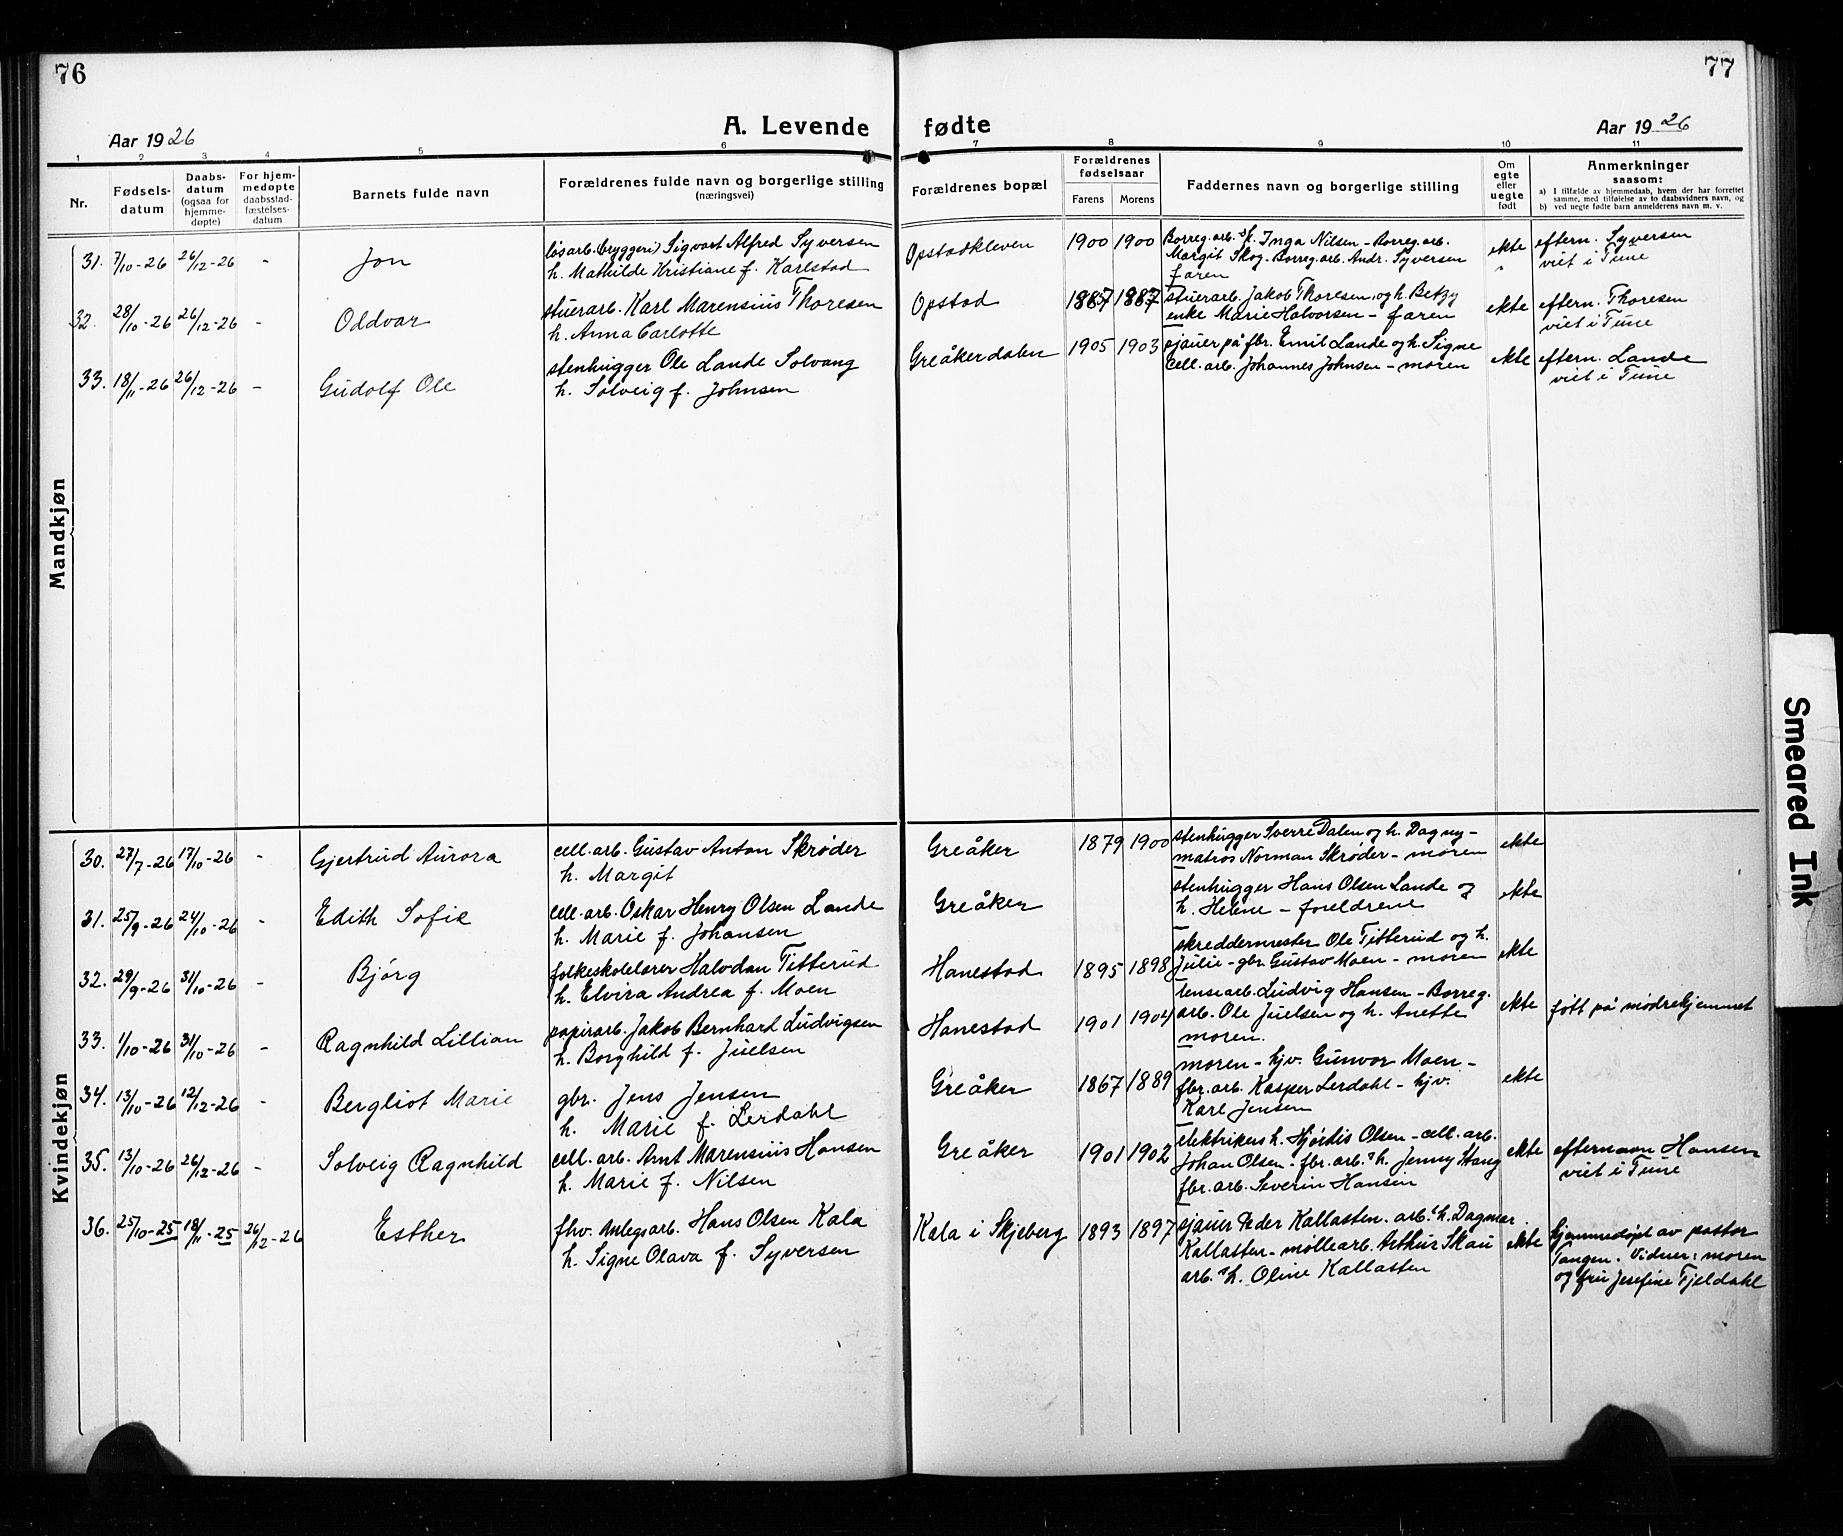 76
77
A. Levende fødte
Aar 1926
Aar 1926
1 2 3 4 5 6 7 8 9 10 11
Nr.
Fødsels-
datum
Daabs-
datum
(ogsaa for
hjemme-
døpte)
For hjem-
medøpte
daabsstad-
fæstelses-
datum
Barnets fulde navn
Forældrenes fulde navn og borgerlige stilling
(næringsvei)
Forældrenes bopæl
Forældrenes
fødselsaar
Farens
Morens
Faddernes navn og borgerlige stilling
Om
egte
eller
uegte
født
Anmerkninger
saasom:
a) I tilfælde av hjemmedaab, hvem der har forrettet
samme, med tilføielse av to daabsvidners navn, og
b) ved uegte fødte barn anmelderens navn m. v.
Mandkjøn
31. 7/10-26 26/12-26 - Jon
løsarb. (bryggeri) Sigvart Alfred Syversen
h. Mathilde Kristiane f. Karlstad
Opstadkleven 1900 1900
Borreg. arb. s h. Inga Nilsen - Borreg. arb.
Margit Skog. Borreg. arb. Andr. Syversen
faren
ekte
eftern. Syversen
viet i Tune
32. 28/10-26 26/12-26 - Oddvar
stuerarb. Karl Marensius Thoresen
h. Anna Carlotte
Opstad 1887 1887
stuerarb. Jakob Thoresen og h. Betzy
enke Marie Halvorsen - faren
ekte
eftern. Thoresen
viet i Tune
33. 18/11-26 26/12-26 - Gudolf Ole
stenhugger Ole Lande Solvang
h. Solveig f. Johnsen
Greåkerdalen 1905 1903
sjauer på fbr. Emil Lande og h. Signe
cell. arb. Johannes Johnsen - moren
ekte
eftern. Lande
viet i Tune
Kvindekjøn
30. 27/7-26 17/10-26 - Gjertrud Aurora
cell. arb. Gustav Anton Skrøder
h. Margit
Greåker 1879 1900
stenhugger Sverre Dalen og h. Dagny -
matros Norman Skrøder - moren
ekte
31. 25/9-26 24/10-26 - Edith Sofie
cell. arb. Oskar Henry Olsen Lande
h. Marie f. Johansen
Greåker
stenhugger Hans Olsen Lande og
h. Helene - foreldrene
ekte
32. 29/9-26 31/10-26 - Bjørg
folkeskolelærer Halvdan Titterud
h. Elvira Andrea f. Moen
Hanestad 1895 1898
skreddermester Ole Titterud og h.
Julie - gbr. Gustav Moen - moren
ekte
33. 1/10-26 31/10-26 - Ragnhild Lillian
papirarb. Jakob Bernhard Ludvigsen
h. Borghild f. Juelsen
Hanestad 1901 1904
lensearb. Ludvig Hansen - Borreg.
arb. Ole Juelsen og h. Anette
moren.
ekte
født på mødrehjemmet
34. 13/10-26 12/12-26 - Bergliot Marie
gbr. Jens Jensen
h. Marie f. Lerdahl
Greåker 1867 1889
moren - hjv. Gunvor Moen -
fbr. arb. Kasper Lerdahl - hjv.
Karl Jensen
ekte
35. 13/10-26 26/12-26 - Solveig Ragnhild
cell. arb. Arnt Marensius Hansen
h. Marie f. Nilsen
Greåker 1901 1902
elektrikers h. Hjørdis Olsen - cell. arb.
Johan Olsen - fbr. arb. s h. Jenny Stang
fbr. arb. Severin Hansen
ekte
efternavn Hansen
viet i Tune
36. 25/10-25 18/11-25 26/12-26 Esther
fhv. Anlegsarb. Hans Olsen Kala
h. Signe Olava f. Syversen
Kala i Skjeberg 1893 1897
sjauer Peder Kallasten. arb. s h. Dagmar
Kallasten - møllearb. Arthur Skau
arb. s h. Oline Kallasten
ekte
hjemmedøpt av pastor
Tangen. Vidner: moren
og fru Josefine Fjeldahl
Smeared Ink